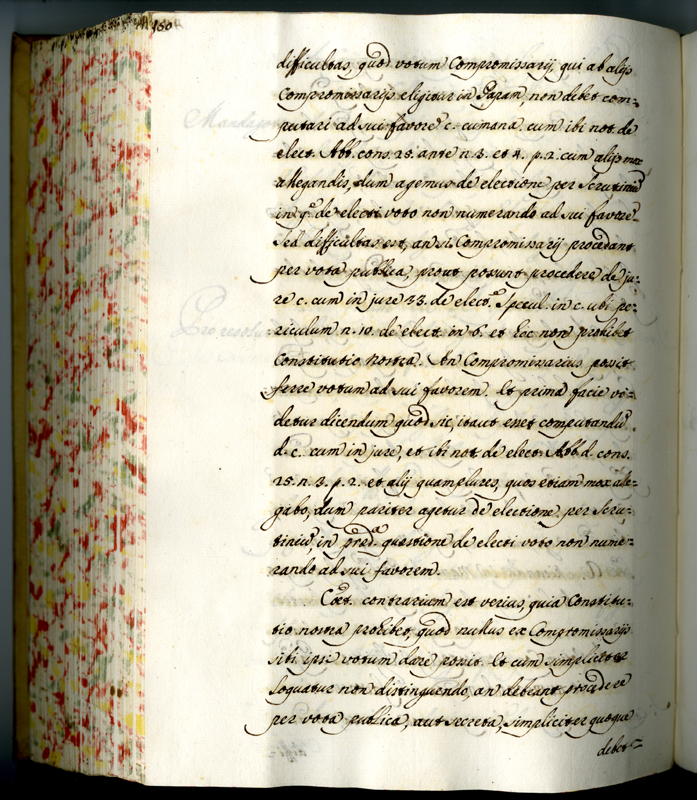 150
difficultas, quod votum Compromissarij, qui ab alijs
Compromissarijs eligitur in Papam, non debet com-
putari ad sui favorē c. cumana, cum ibi not. de
elect. Abb. cons. 25. ante n. 3. et 4. p. 2. cum alijs mox
allegandis, dum agemus de electione per Scrutiniū
in qº. de electi voto non numerando ad sui favorē
Sed difficultas est, an si Compromissarij procedant
per vota publica, prout possunt procedere de ju-
re c. cum in jure 33. de elect. Specul. in c. ubi pe-
riculum n. 10. de elect. in 6. et hoc non prohibet
Constitutio nostra. An Compromissarius possit
ferre votum ad sui favorem. Et prima facie vi-
detur dicendum quod sic, ita ut esset computandū
d. c. cum in jure, et ibi not. de elect. Abb. d. cons.
25. n. 3. p. 2. et alij quamplures, quos etiam mox alle-
gabo, dum pariter agetur de electione per Scru-
tiniū, in prædª. questione de electi voto non nume-
rando ad sui favorem.
Cæt. contrarium est verius, quia Constitu-
tio nostra prohibet, quod nullus ex Compromissarijs
sibi ipsi votum dare possit. Et cum simpliciter
loquatur non distinguendo, an debeant procedere
per vota publica, aut secreta, simpliciter quoque
debet